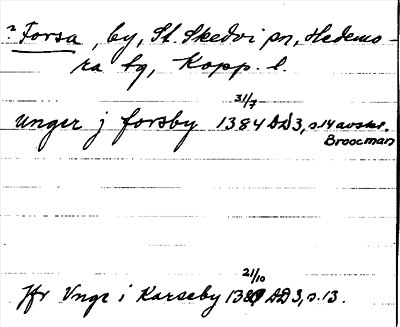 ? Forsa, by, St. Skedvi sn, Hedemo-
ra tg, Kopp. l.
31/7
unger j forsby 1384 DD3, s. 14 avskr.
Broocman
21/10
Jfr Vnge i Karseby 1380 DD3, s. 13.